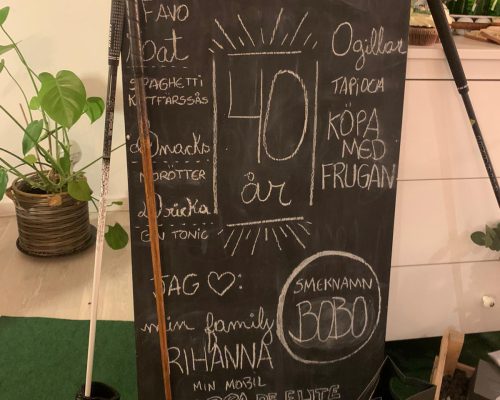 FAVO
mat
SPAGHETTI
KÖTTFÄRSSÅS
Snacks
MORÖTTER
Dricka
GIN TONIC
40
år
Ogillar
TAPIOCA
KÖPA
MED
FRUGAN
JAG ♡:
min family
RIHANNA
MIN MOBIL
DE ELITE
SMEKNAMN
BOBO